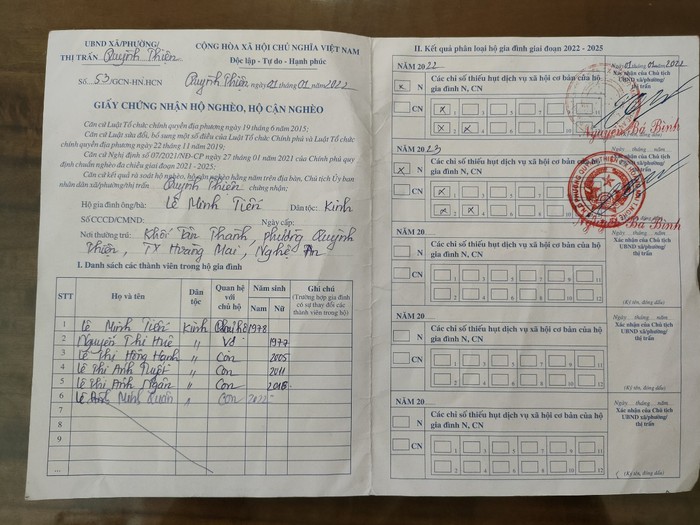 UBND XÃ/PHƯỜNG/
THỊ TRẤN Quỳnh Thiện
CỘNG HÒA XÃ HỘI CHỦ NGHĨA VIỆT NAM
Độc lập - Tự do - Hạnh phúc
Số 53/GCN-HN.HCN
Quỳnh Thiện ngày 01 tháng 01 năm 2022
GIẤY CHỨNG NHẬN HỘ NGHÈO, HỘ CẬN NGHÈO
Căn cứ Luật Tổ chức chính quyền địa phương ngày 19 tháng 6 năm 2015;
Căn cứ Luật sửa đổi, bổ sung một số điều của Luật Tổ chức Chính phủ và Luật Tổ chức
chính quyền địa phương ngày 22 tháng 11 năm 2019;
Căn cứ Nghị định số 07/2021/NĐ-CP ngày 27 tháng 01 năm 2021 của Chính phủ quy
định chuẩn nghèo đa chiều giai đoạn 2021 - 2025;
Căn cứ kết quả rà soát hộ nghèo, hộ cận nghèo hằng năm trên địa bàn, Chủ tịch Ủy ban
nhân dân xã/phường/thị trấn Quỳnh Thiện chứng nhận:
Hộ gia đình ông/bà: Lê Minh Tiến Dân tộc: Kinh
Số CCCD/CMND: Ngày cấp:
Nơi thường trú: Khối Tân Thành, phường Quỳnh
Thiện, TX Hoàng Mai, Nghệ An
I. Danh sách các thành viên trong hộ gia đình
STT Họ và tên Dân tộc Quan hệ với chủ hộ Năm sinh Ghi chú
Nam Nữ (Trường hợp gia đình có sự thay đổi các thành viên trong hộ)
1 Lê Minh Tiến Kinh Chủ hộ 1978
2 Nguyễn Thị Huệ " Vợ 1977
3 Lê Thị Hồng Hạnh " Con 2005
4 Lê Thị Ánh Tuyết " Con 2011
5 Lê Thị Ánh Ngân " Con 2015
6 Lê Minh Quân " Con 2022
7
8
9
...
II. Kết quả phân loại hộ gia đình giai đoạn 2022 - 2025
NĂM 2022
x N
CN
Các chỉ số thiếu hụt dịch vụ xã hội cơ bản của hộ
gia đình N, CN
1 3 5 7 9 11
2 4 6 8 10 12
Ngày 01 tháng 01 năm 2022
Xác nhận của Chủ tịch
UBND xã/phường/
thị trấn
Nguyễn Bá Bình
NĂM 2023
x N
CN
Các chỉ số thiếu hụt dịch vụ xã hội cơ bản của hộ
gia đình N, CN
1 3 5 7 9 11
2 4 6 8 10 12
Bá Bình
NĂM 20
N
CN
Các chỉ số thiếu hụt dịch vụ xã hội cơ bản của hộ
gia đình N, CN
1 3 5 7 9 11
2 4 6 8 10 12
Ngày tháng năm
Xác nhận của Chủ tịch
UBND xã/phường/
thị trấn
(Ký tên, đóng dấu)
NĂM 20
N
CN
Các chỉ số thiếu hụt dịch vụ xã hội cơ bản của hộ
gia đình N, CN
1 3 5 7 9 11
2 4 6 8 10 12
Ngày tháng năm
Xác nhận của Chủ tịch
UBND xã/phường/
thị trấn
(Ký tên, đóng dấu)
NĂM 20
N
CN
Các chỉ số thiếu hụt dịch vụ xã hội cơ bản của hộ
gia đình N, CN
1 3 5 7 9 11
2 4 6 8 10 12
Ngày tháng năm
Xác nhận của Chủ tịch
UBND xã/phường/
thị trấn
(Ký tên, đóng dấu)